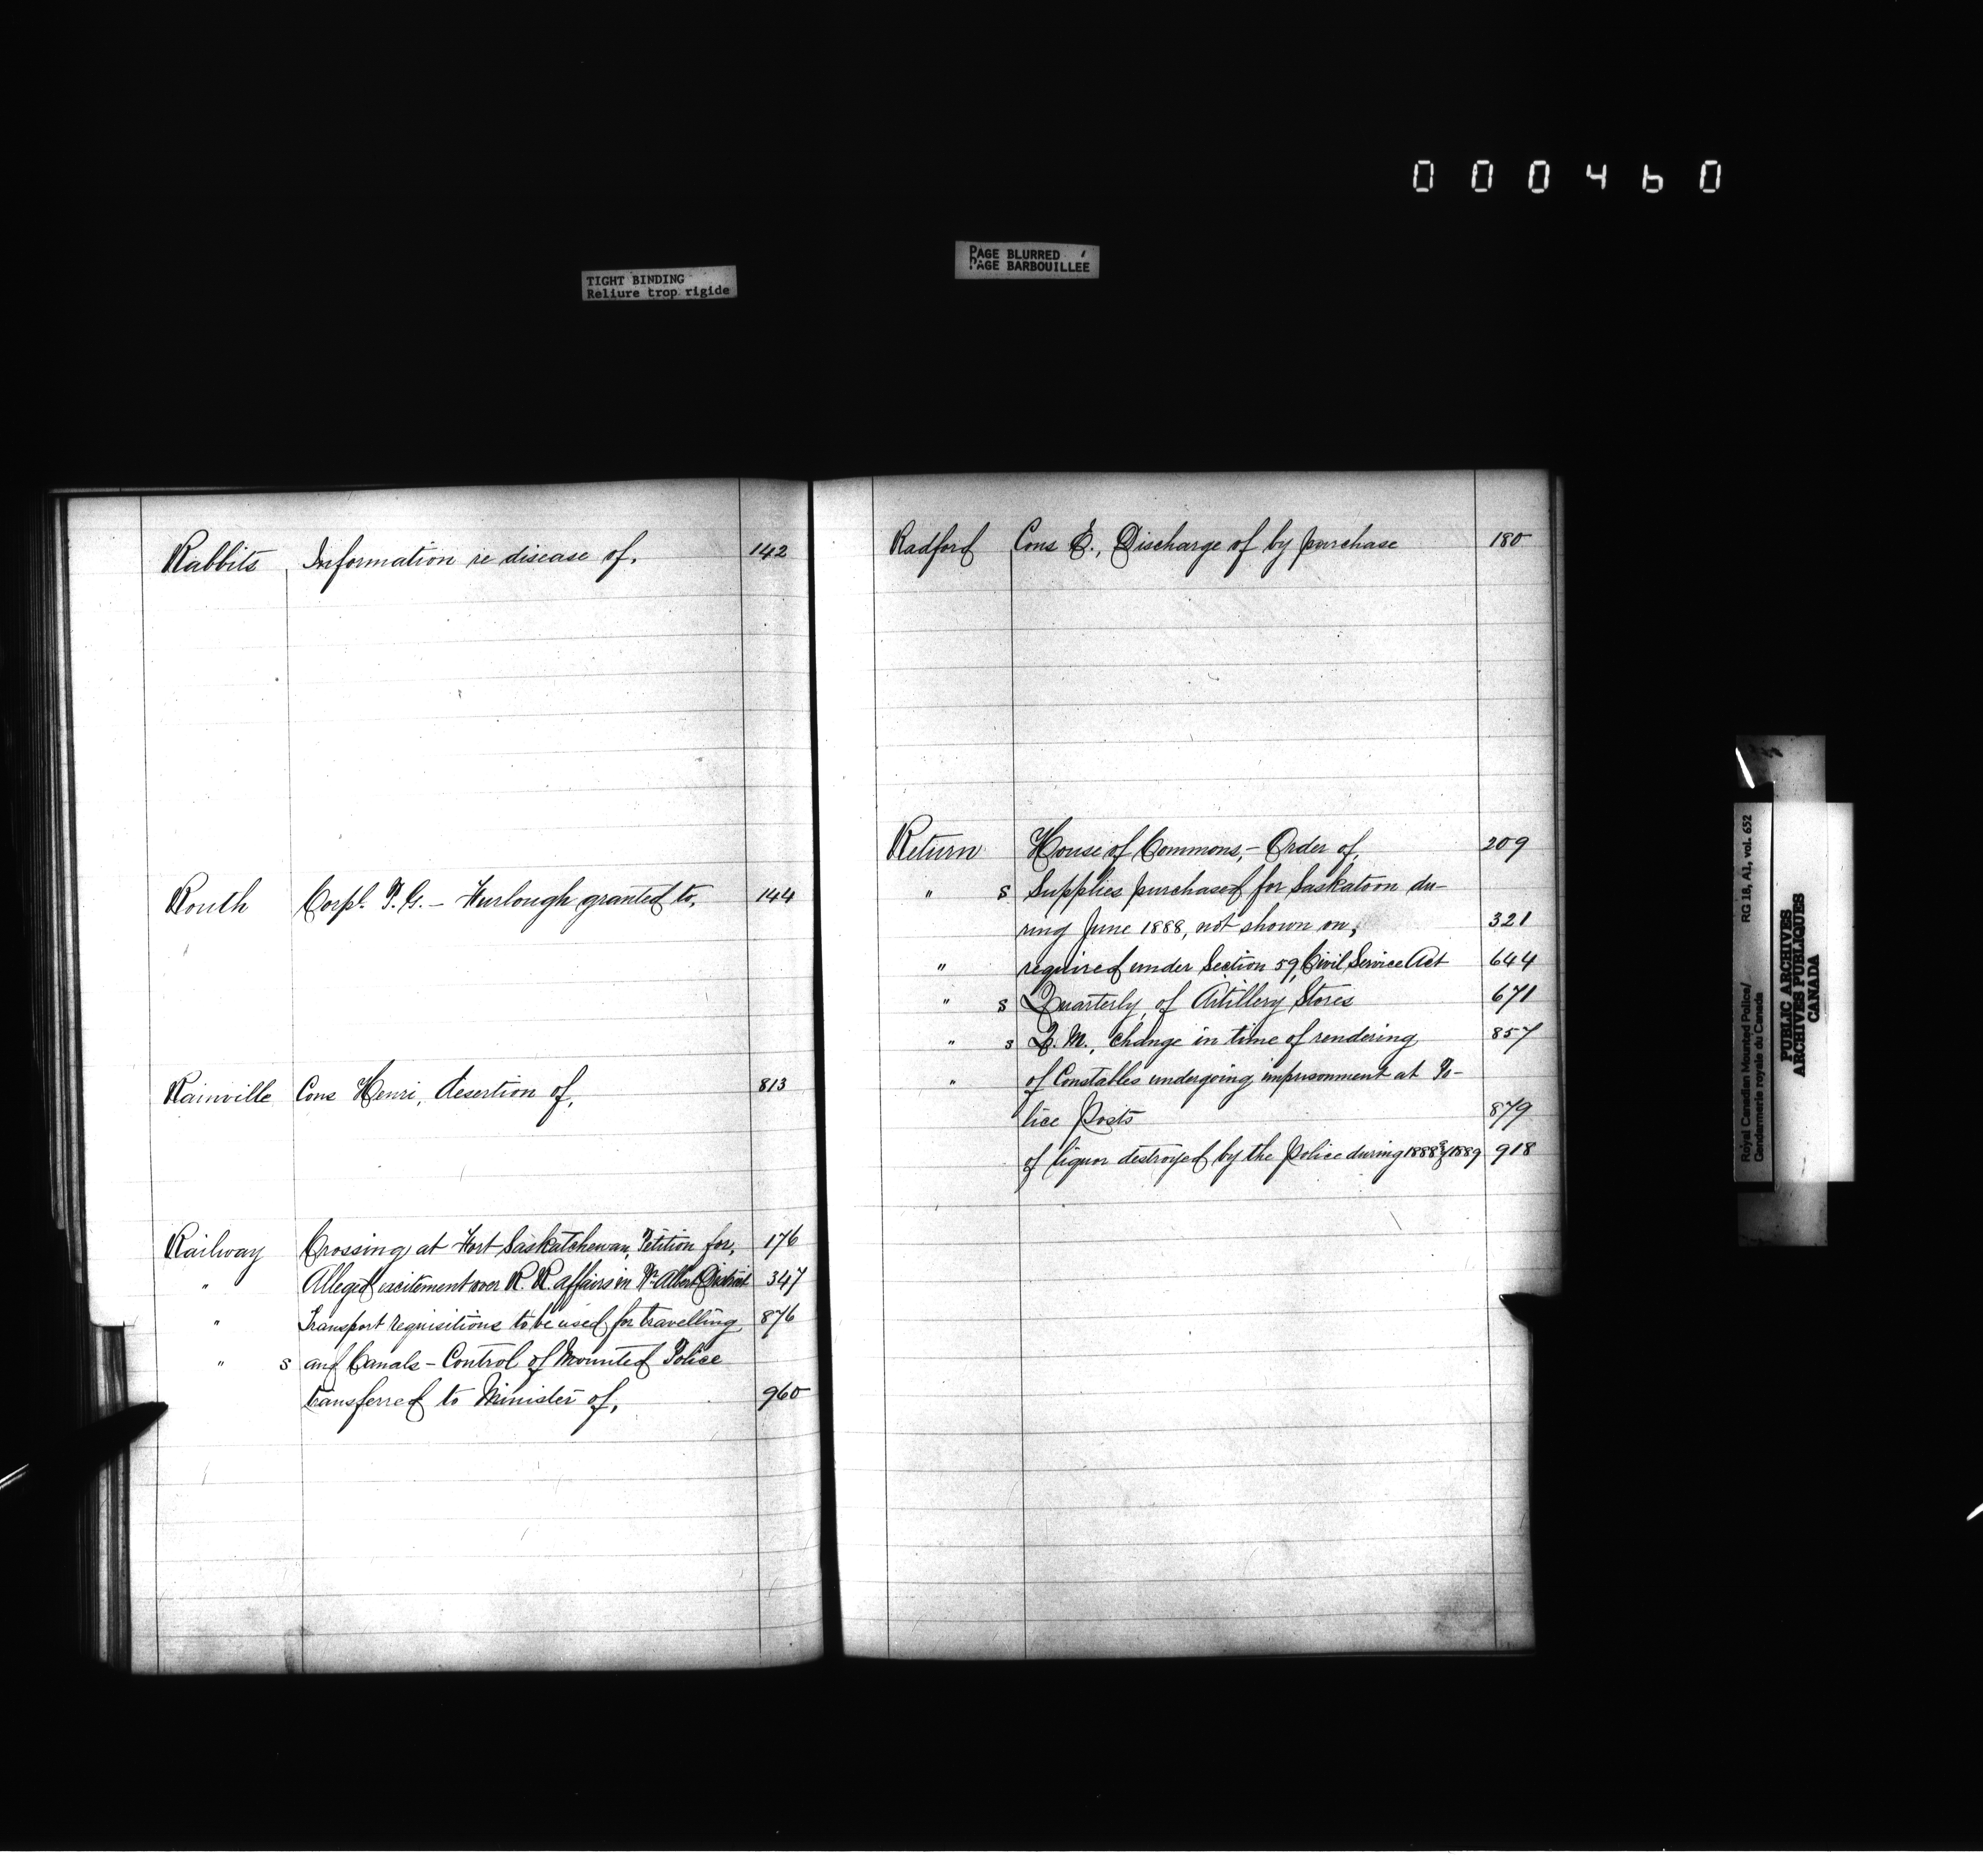 000460
TIGHT BINDING
Reliure trop rigide
PAGE BLURRED
PAGE BARBOUILLÉE
Rabbits Information re disease of, 142
Routh Corpl. T. G. – Furlough granted to, 144
Rainville Cons Henri, desertion of, 813
Railway Crossing at Fort Saskatchewan, Petition for, 176
" Alleged excitement over R. R. affairs in Pr Albert District 347
" Transport requisitions to be used for travelling 876
" s and Canals – Control of Mounted Police
transferred to Minister of, 960
Radford Cons E., Discharge of by purchase 180
Return House of Commons, – Order of, 209
" s Supplies purchased for Saskatoon du-
ring June 1888, not shown on, 321
" required under Section 59, Civil Service Act 644
" s Quarterly, of Artillery Stores 671
" s Q. M., change in time of rendering 857
" of Constables undergoing imprisonment at Po-
lice Posts 879
of liquor destroyed by the Police during 1888 & 1889 918
Royal Canadian Mounted Police/ RG 18, A1, vol. 652
Gendarmerie royale du Canada
PUBLIC ARCHIVES
ARCHIVES PUBLIQUES
CANADA